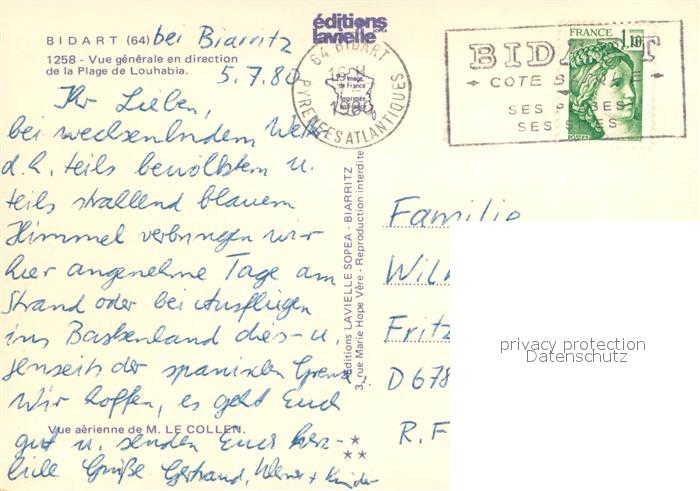 éditions
lavielle
BIDART (64) bei Biarritz
1258 - Vue générale en direction
de la Plage de Louhabia.
5.7.80
64 BIDART
PYRENEES ATLANTIQUES
Image
de France
imprimée
BIDART
COTE BASQUE
SES PLAGES
SES SITES
FRANCE
1,10
POSTES
Ihr Lieben,
bei wechselndem Wetter
d.h. teils bewölktem u.
teils strallend blauem
Himmel verbringen wir
hier angenehme Tage am
Strand oder bei Ausflügen
ins Baskenland dies- u.
jenseits der spanischen Grenze.
Wir hoffen, es geht Euch
gut u. senden Euch herz-
liche Grüße Gertraud, Werner + Kinder
Vue aérienne de M. LE COLLEN.
éditions LAVIELLE SOPEA - BIARRITZ
3, rue Marie Hope Vère - Reproduction interdite
Familie
Fritz
D 678
R.F
privacy protection
Datenschutz